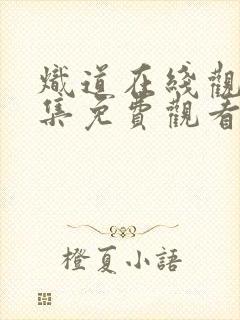 熾道在綫觀
集免費觀看
橙夏小語